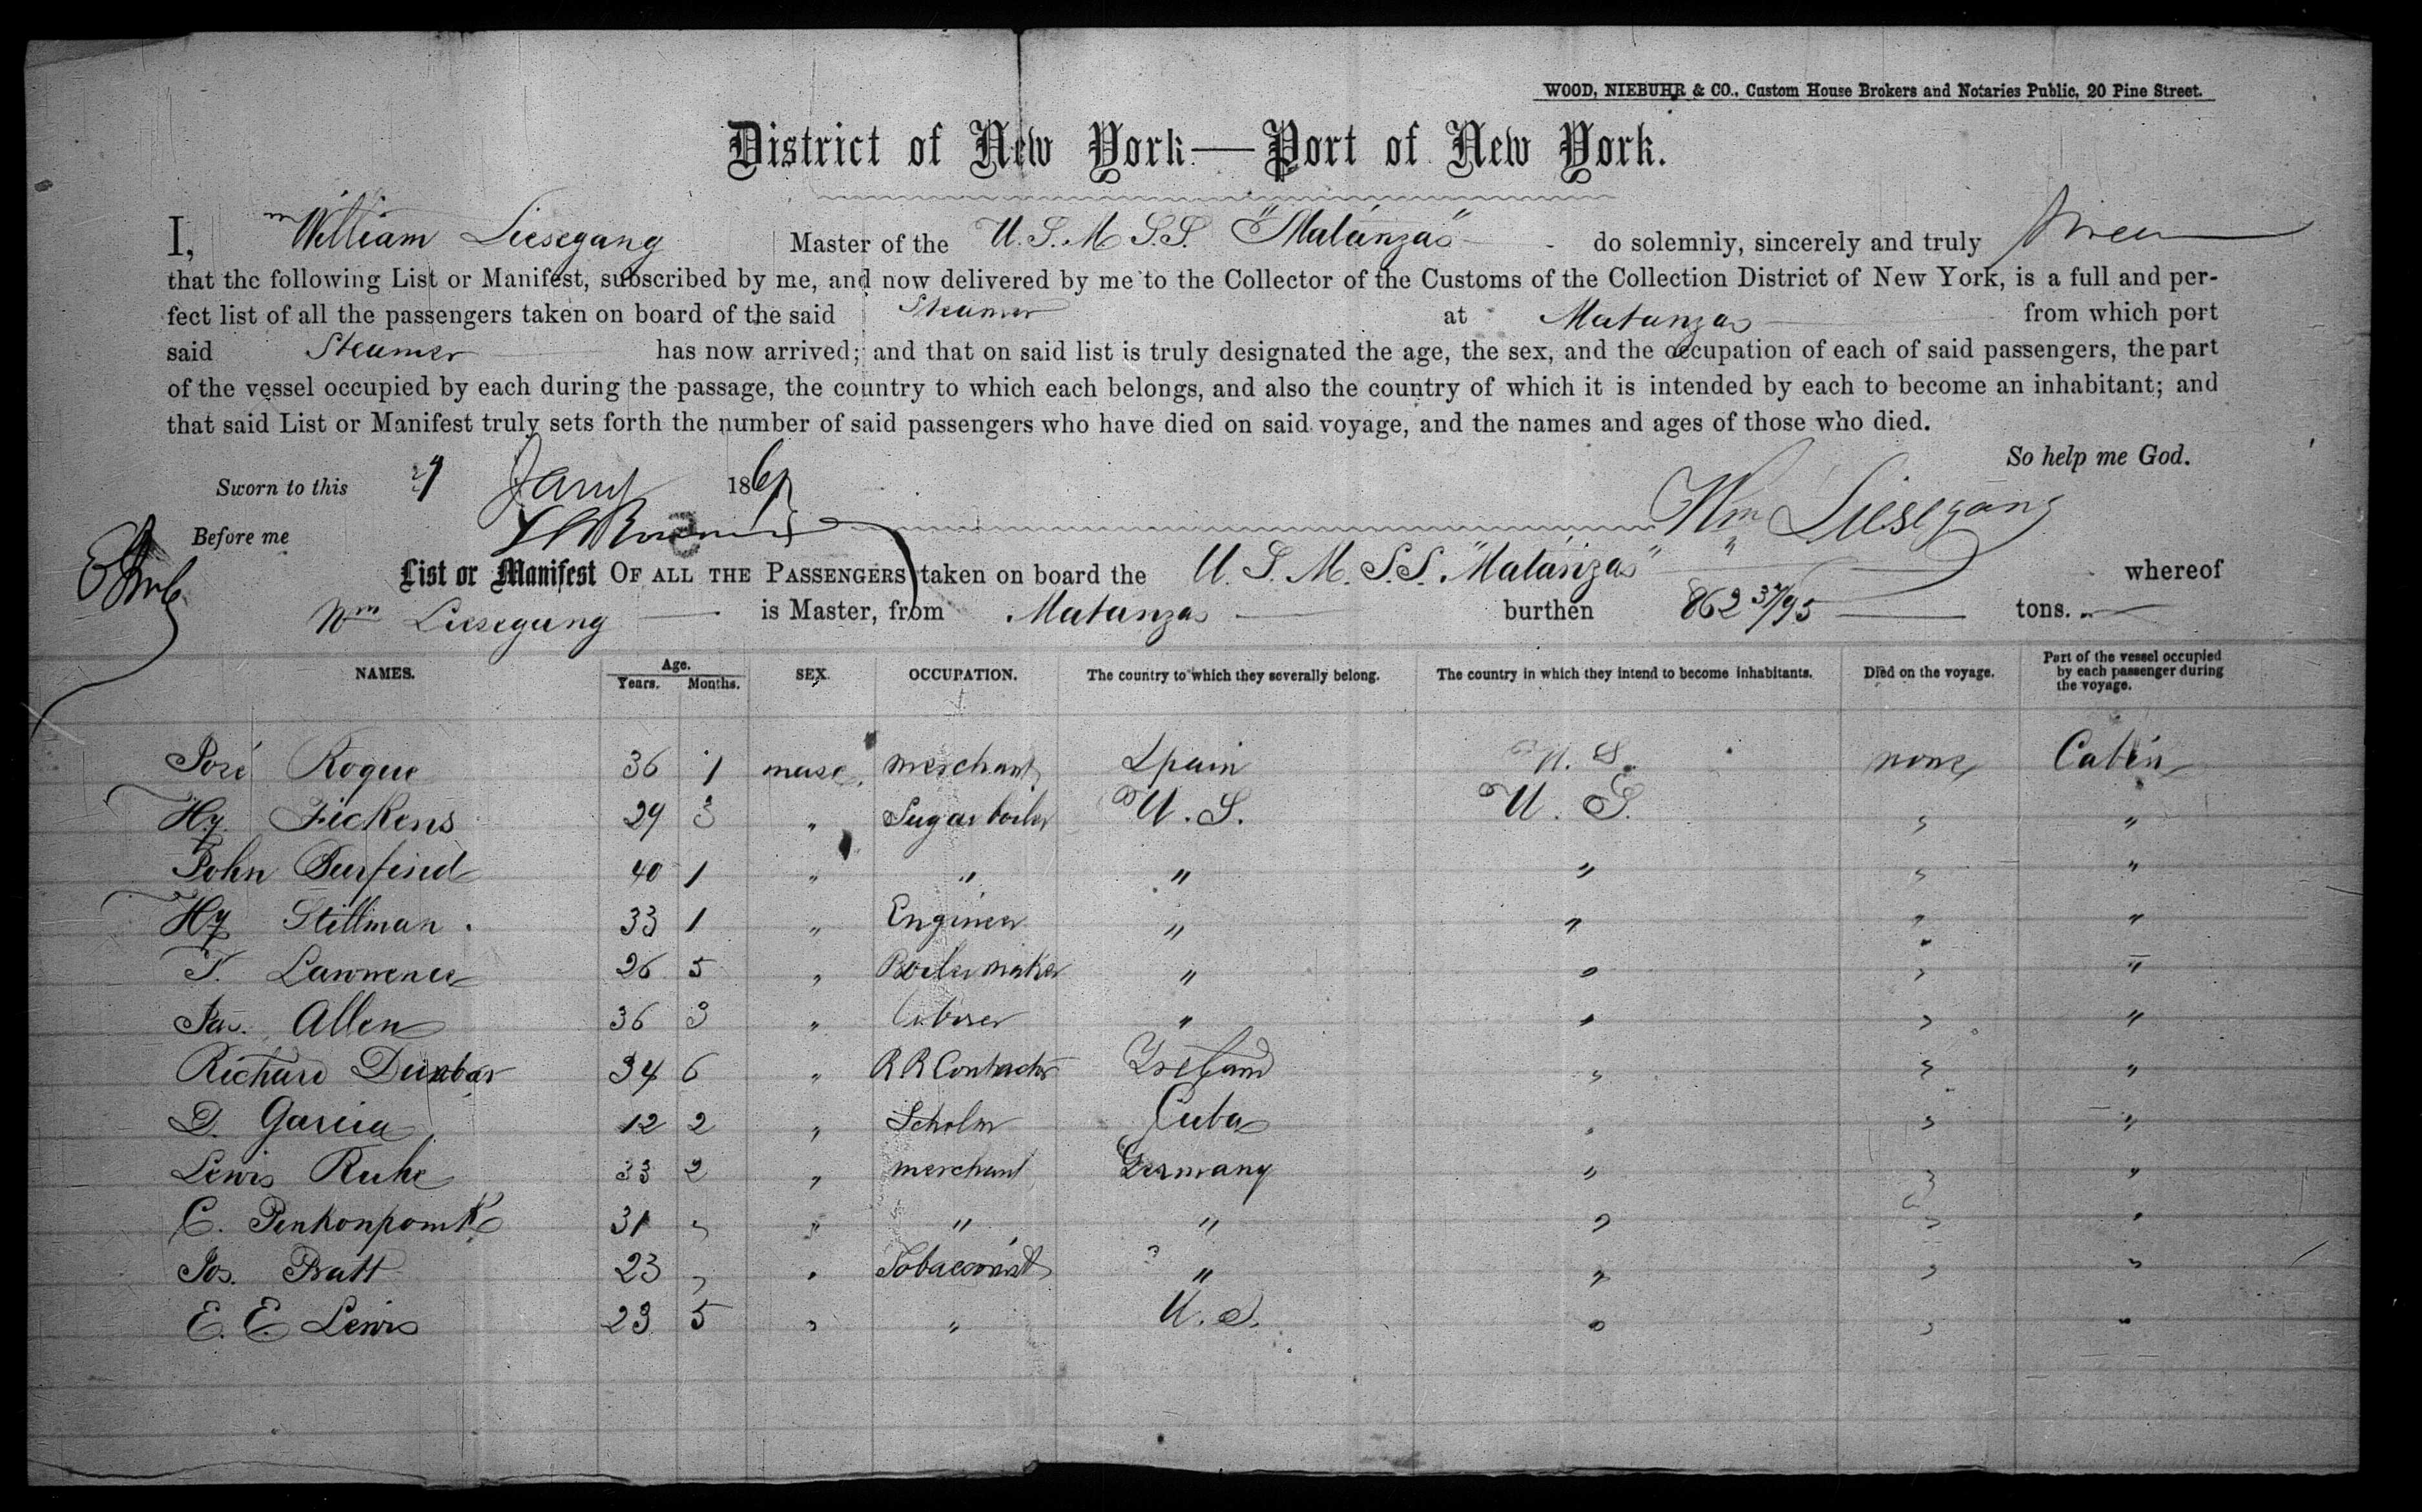 WOOD, NIEBUHR & CO., Custom House Brokers and Notaries Public, 20 Pine Street.
District of New York—Port of New York.
I, William Liesegang Master of the U. S. M S. S. "Matanzas" do solemnly, sincerely and truly swear
that the following List or Manifest, subscribed by me, and now delivered by me to the Collector of the Customs of the Collection District of New York, is a full and per-
fect list of all the passengers taken on board of the said Steamer at Matanzas from which port
said Steamer has now arrived; and that on said list is truly designated the age, the sex, and the occupation of each of said passengers, the part
of the vessel occupied by each during the passage, the country to which each belongs, and also the country of which it is intended by each to become an inhabitant; and
that said List or Manifest truly sets forth the number of said passengers who have died on said voyage, and the names and ages of those who died.
So help me God.
Sworn to this Jany 186
Wm Liesegang
Before me
List or Manifest OF ALL THE PASSENGERS taken on board the U. S. M. S. S. "Matanzas" whereof
Wm Liesegang is Master, from Matanzas burthen 862 37/95 tons.
NAMES. Age. Years. Months. SEX. OCCUPATION. The country to which they severally belong. The country in which they intend to become inhabitants. Died on the voyage. Part of the vessel occupied by each passenger during the voyage.
José Roque 36 1 masc. merchant Spain U. S. none Cabin
Hy. Fickens 29 3 " Sugar boiler U. S. U. S. " "
John 40 1 " " " " " "
Hy Stillman. 33 1 " Engineer " " " "
T. Lawrence 26 5 " Boiler maker " " " "
Jas. Allen 36 3 " laborer " " " "
Richard Dunbar 34 6 " R R Contractor Ireland " " "
D. Garcia 12 2 " Scholar Cuba " " "
Lewis Ruhe 33 2 " merchant Germany " " "
C. 31 " " " " " " "
Jos. Pratt 23 " " Tobacconist " " " "
E. E. Lewis 23 5 " " U. S. " " "